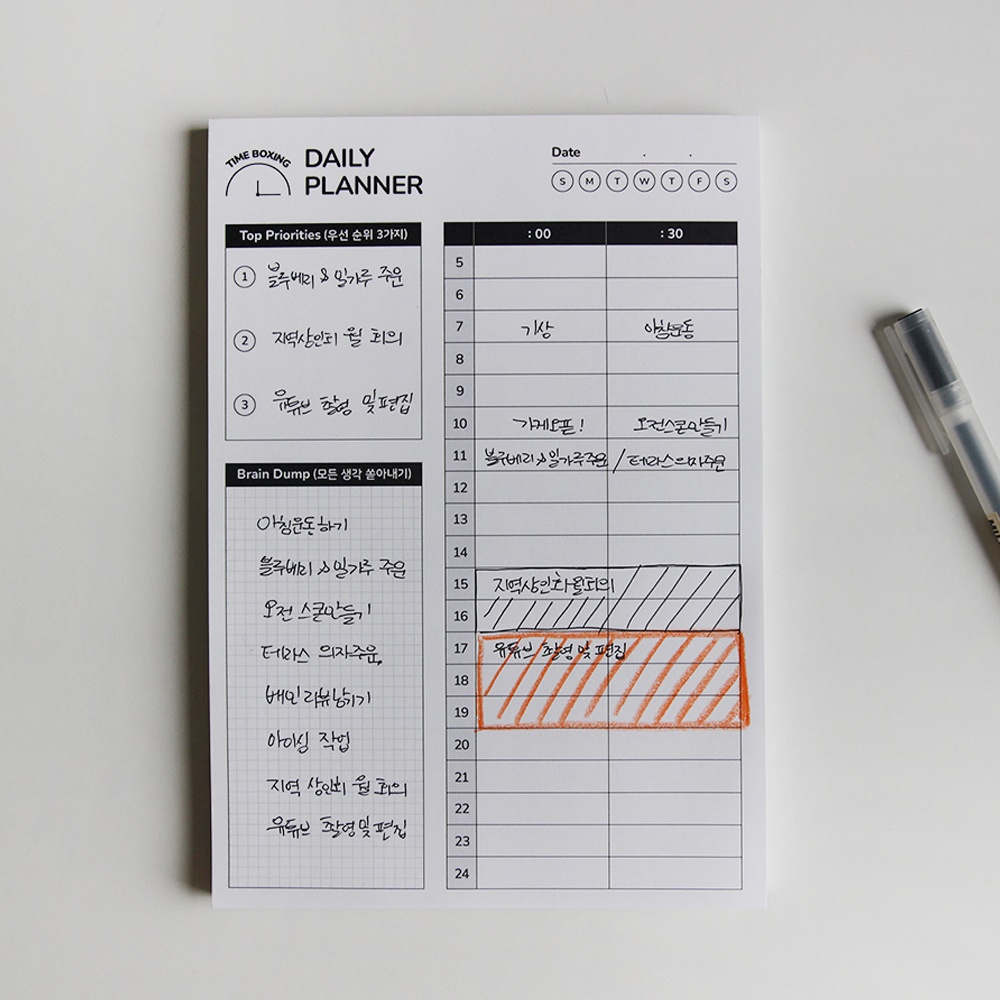 TIME BOXING
DAILY
PLANNER
Date . .
S M T W T F S
Top Priorities (우선 순위 3가지)
1 블루베리 & 밀가루 주문
2 지역상인회 월 회의
3 유튜브 촬영 및 편집
Brain Dump (모든 생각 쏟아내기)
아침운동하기
블루베리 & 밀가루 주문
오전 스콘만들기
테라스 의자주문
배민 리뷰남기기
아이싱 작업
지역 상인회 월 회의
유튜브 촬영 및 편집
:00 :30
5
6
7 기상 아침운동
8
9
10 가게오픈! 오전스콘만들기
11 블루베리 & 밀가루주문 / 테라스의자주문
12
13
14
15 지역상인회월회의
16
17 유튜브 촬영 및 편집
18
19
20
21
22
23
24